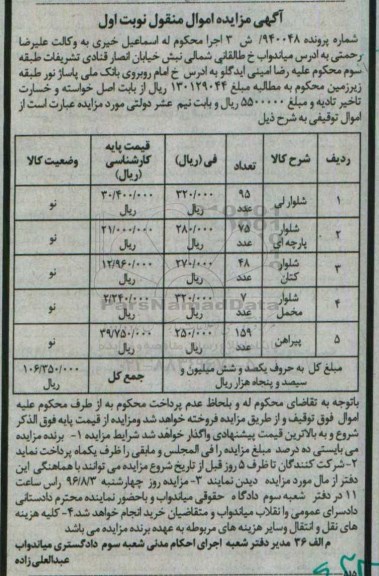 آگهی مزایده اموال منقول نوبت اول
شماره پرونده ۹۴۰۰۴۸/ ش ۳ اجرا محکوم له اسماعیل خیری به وکالت علیرضا
رحمتی به ادرس میاندواب خ طالقانی شمالی نبش خیابان انصار قنادی تشریفات طبقه
سوم محکوم علیه رضا امینی ایدگلو به ادرس خ امام روبروی بانک ملی پاساژ نور طبقه
زیرزمین محکوم به مطالبه مبلغ ۱۳۰۱۲۹۰۴۴ ریال از بابت اصل خواسته و خسارت
تاخیر تادیه و مبلغ ۵۵۰۰۰۰۰ ریال و بابت نیم عشر دولتی مورد مزایده عبارت است از
اموال توقیفی به شرح ذیل
ردیف شرح کالا تعداد فی (ریال) قیمت پایه کارشناسی (ریال) وضعیت کالا
۱ شلوار لی ۹۵ عدد ۳۲۰/۰۰۰ ریال ۳۰/۴۰۰/۰۰۰ ریال نو
۲ شلوار پارچه ای ۷۵ عدد ۲۸۰/۰۰۰ ریال ۲۱/۰۰۰/۰۰۰ ریال نو
۳ شلوار کتان ۴۸ عدد ۲۷۰/۰۰۰ ریال ۱۲/۹۶۰/۰۰۰ ریال نو
۴ شلوار مخمل ۷ عدد ۳۲۰/۰۰۰ ریال ۲/۲۴۰/۰۰۰ ریال نو
۵ پیراهن ۱۵۹ عدد ۲۵۰/۰۰۰ ریال ۳۹/۷۵۰/۰۰۰ ریال نو
مبلغ کل به حروف یکصد و شش میلیون و سیصد و پنجاه هزار ریال جمع کل ۱۰۶/۳۵۰/۰۰۰ ریال
باتوجه به تقاضای محکوم له و بلحاظ عدم پرداخت محکوم به از طرف محکوم علیه
اموال فوق توقیف و از طریق مزایده فروخته خواهد شد ومزایده از قیمت پایه فوق الذکر
شروع و به بالاترین قیمت پیشنهادی واگذار خواهد شد شرایط مزایده ۱- برنده مزایده
می بایستی ده درصد مبلغ مزایده را فی المجلس و مابقی را ظرف یکماه پرداخت نماید
۲- شرکت کنندگان تا ظرف ۵ روز قبل از تاریخ شروع مزایده می توانند با هماهنگی این
دفتر از مال مورد مزایده دیدن نمایند ۳- مزایده روز چهارشنبه ۹۶/۸/۳ راس ساعت
۱۱ در دفتر شعبه سوم دادگاه حقوقی میاندواب و باحضور نماینده محترم دادستانی
دادسرای عمومی وانقلاب میاندواب و متقاضیان خرید انجام خواهد شد. ۴- کلیه هزینه
های نقل و انتقال وسایر هزینه های مربوطه به عهده برنده مزایده می باشد
م الف ۳۶ مدیر دفتر شعبه اجرای احکام مدنی شعبه سوم دادگستری میاندواب
عبدالعلی زاده